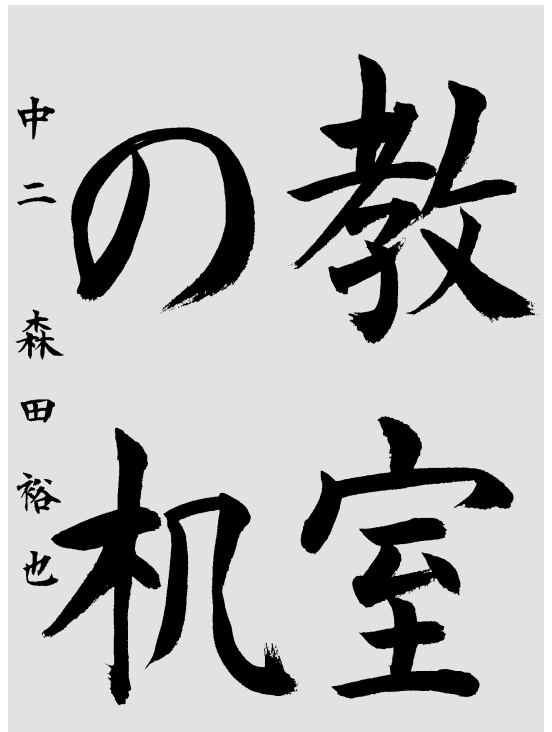 教室
の机
中二 森田裕也